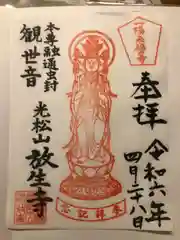 奉拝
令和六年
四月二十八日
本尊融通虫封
観世音
光松山
放生寺
参拝記念